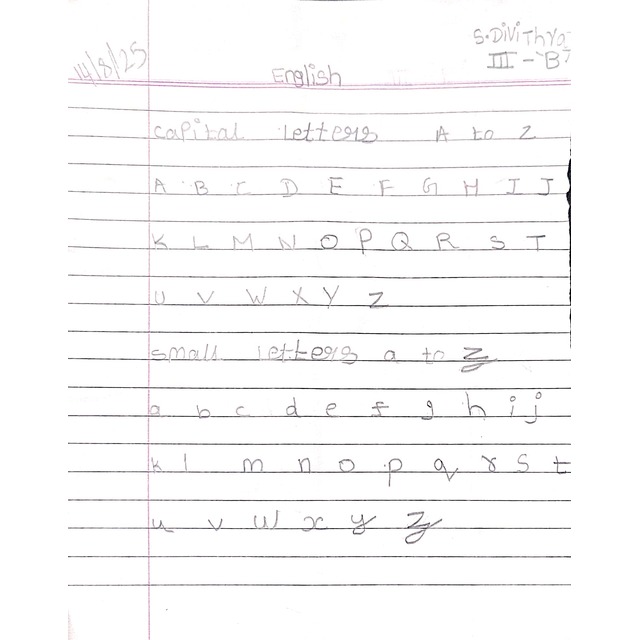 S. Divithya
14/8/25 III - 'B'
English
capital letters A to Z
A B C D E F G H I J
K L M N O P Q R S T
U V W X Y Z
small letters a to z
a b c d e f g h i j
k l m n o p q r s t
u v w x y z